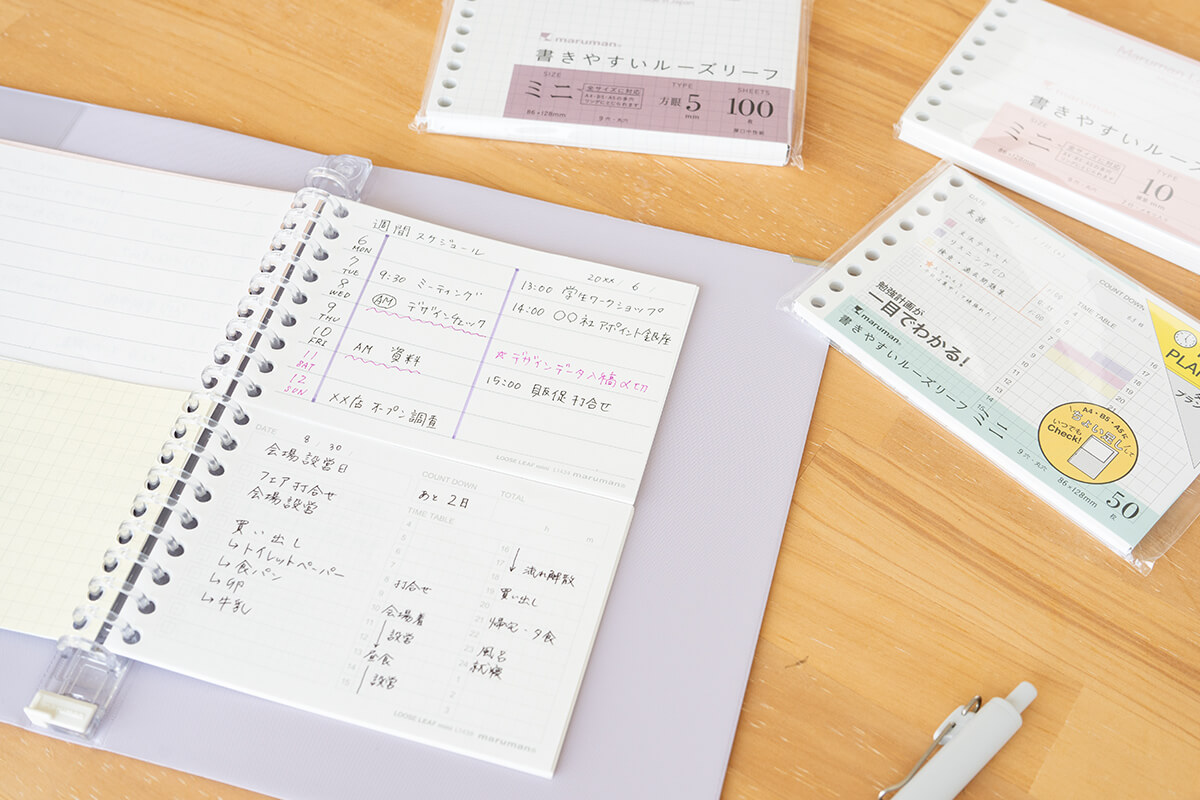 maruman®
書きやすいルーズリーフ
SIZE
ミニ
全サイズに対応
TYPE
方眼5mm
SHEETS
100枚
86×128mm
9穴・丸穴
書きやすいルーズリーフ
SIZE
ミニ
TYPE
10
86×128mm
週間スケジュール
20×× / 6 /
6 MON
7 TUE
8 WED
9 THU
10 FRI
11 SAT
12 SUN
9:30 ミーティング
AM デザインチェック
AM 資料
××店 オープン調査
13:00 学生ワークショップ
14:00 ○○社アポイント銀座
☆デザインデータ入稿〆切
15:00 販促打合せ
LOOSE LEAF mini
maruman®
DATE
8 / 30
会場設営日
フェア打合せ
会場設営
買い出し
↳トイレットペーパー
↳食パン
↳牛乳
COUNT DOWN
あと2日
TOTAL
h
m
TIME TABLE
打合せ
会場着
↓設営
昼食
設営
流れ解散
買い出し
帰宅・夕食
風呂
就寝
LOOSE LEAF mini
maruman®
DATE
英語
リスニングCD
COUNT DOWN
TIME TABLE
勉強計画が
一目でわかる!
maruman®
書きやすいルーズリーフ ミニ
9穴・丸穴
86×128mm
50枚
A4・B5・A5に
ちょい足しして
いつでも
Check!